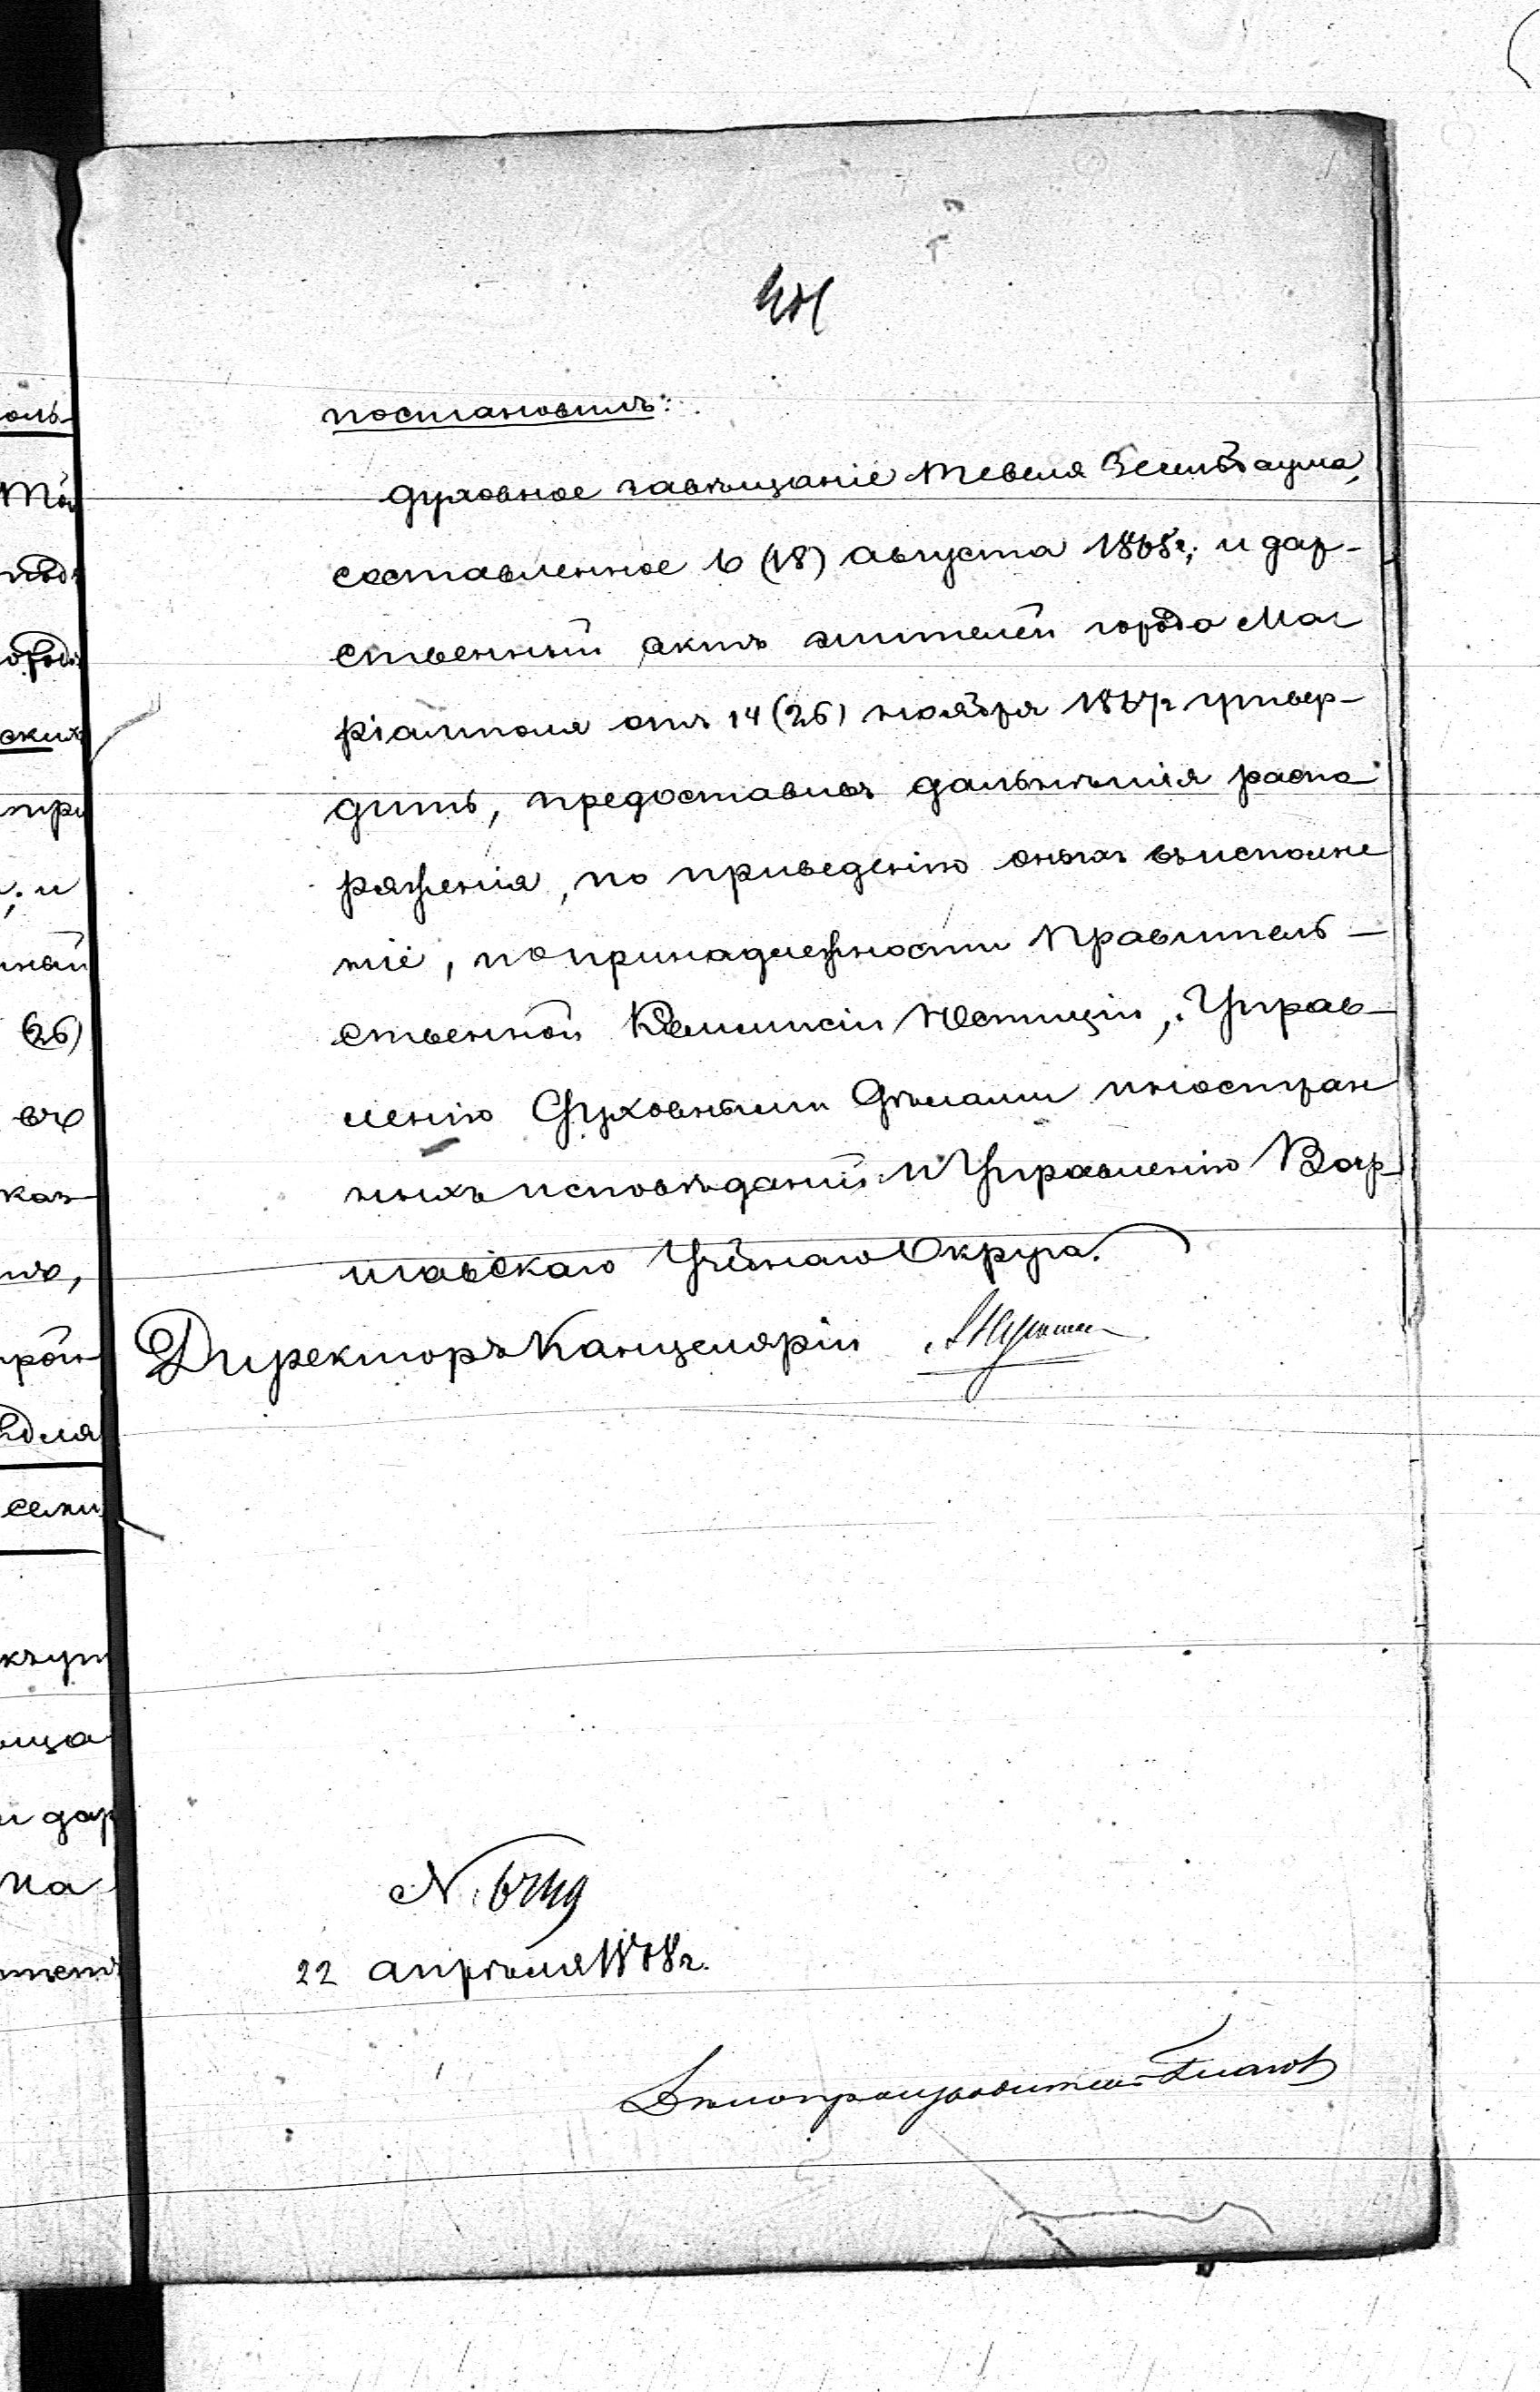 постановилъ:
духовное завѣщаніе Тевеля Зелибаума,
составленное 6 (18) августа 1865г; и дар-
ственный актъ жителей города Ма-
ріамполя отъ 14 (26) ноября 1867г утвер-
дить, предоставивъ дальнѣйшія распо-
ряженія, по приведенію оныхъ въ исполне
ніе, по принадлежности Правитель-
ственной Коммисіи Юстиціи, Управ-
ленію Духовными Дѣлами иностран
ныхъ исповѣданій и Управленію Вар-
шавскаго Учебнаго Округа.
Директоръ Канцеляріи
N.
22 апрѣля 1868г.
Дѣлопроизводитель